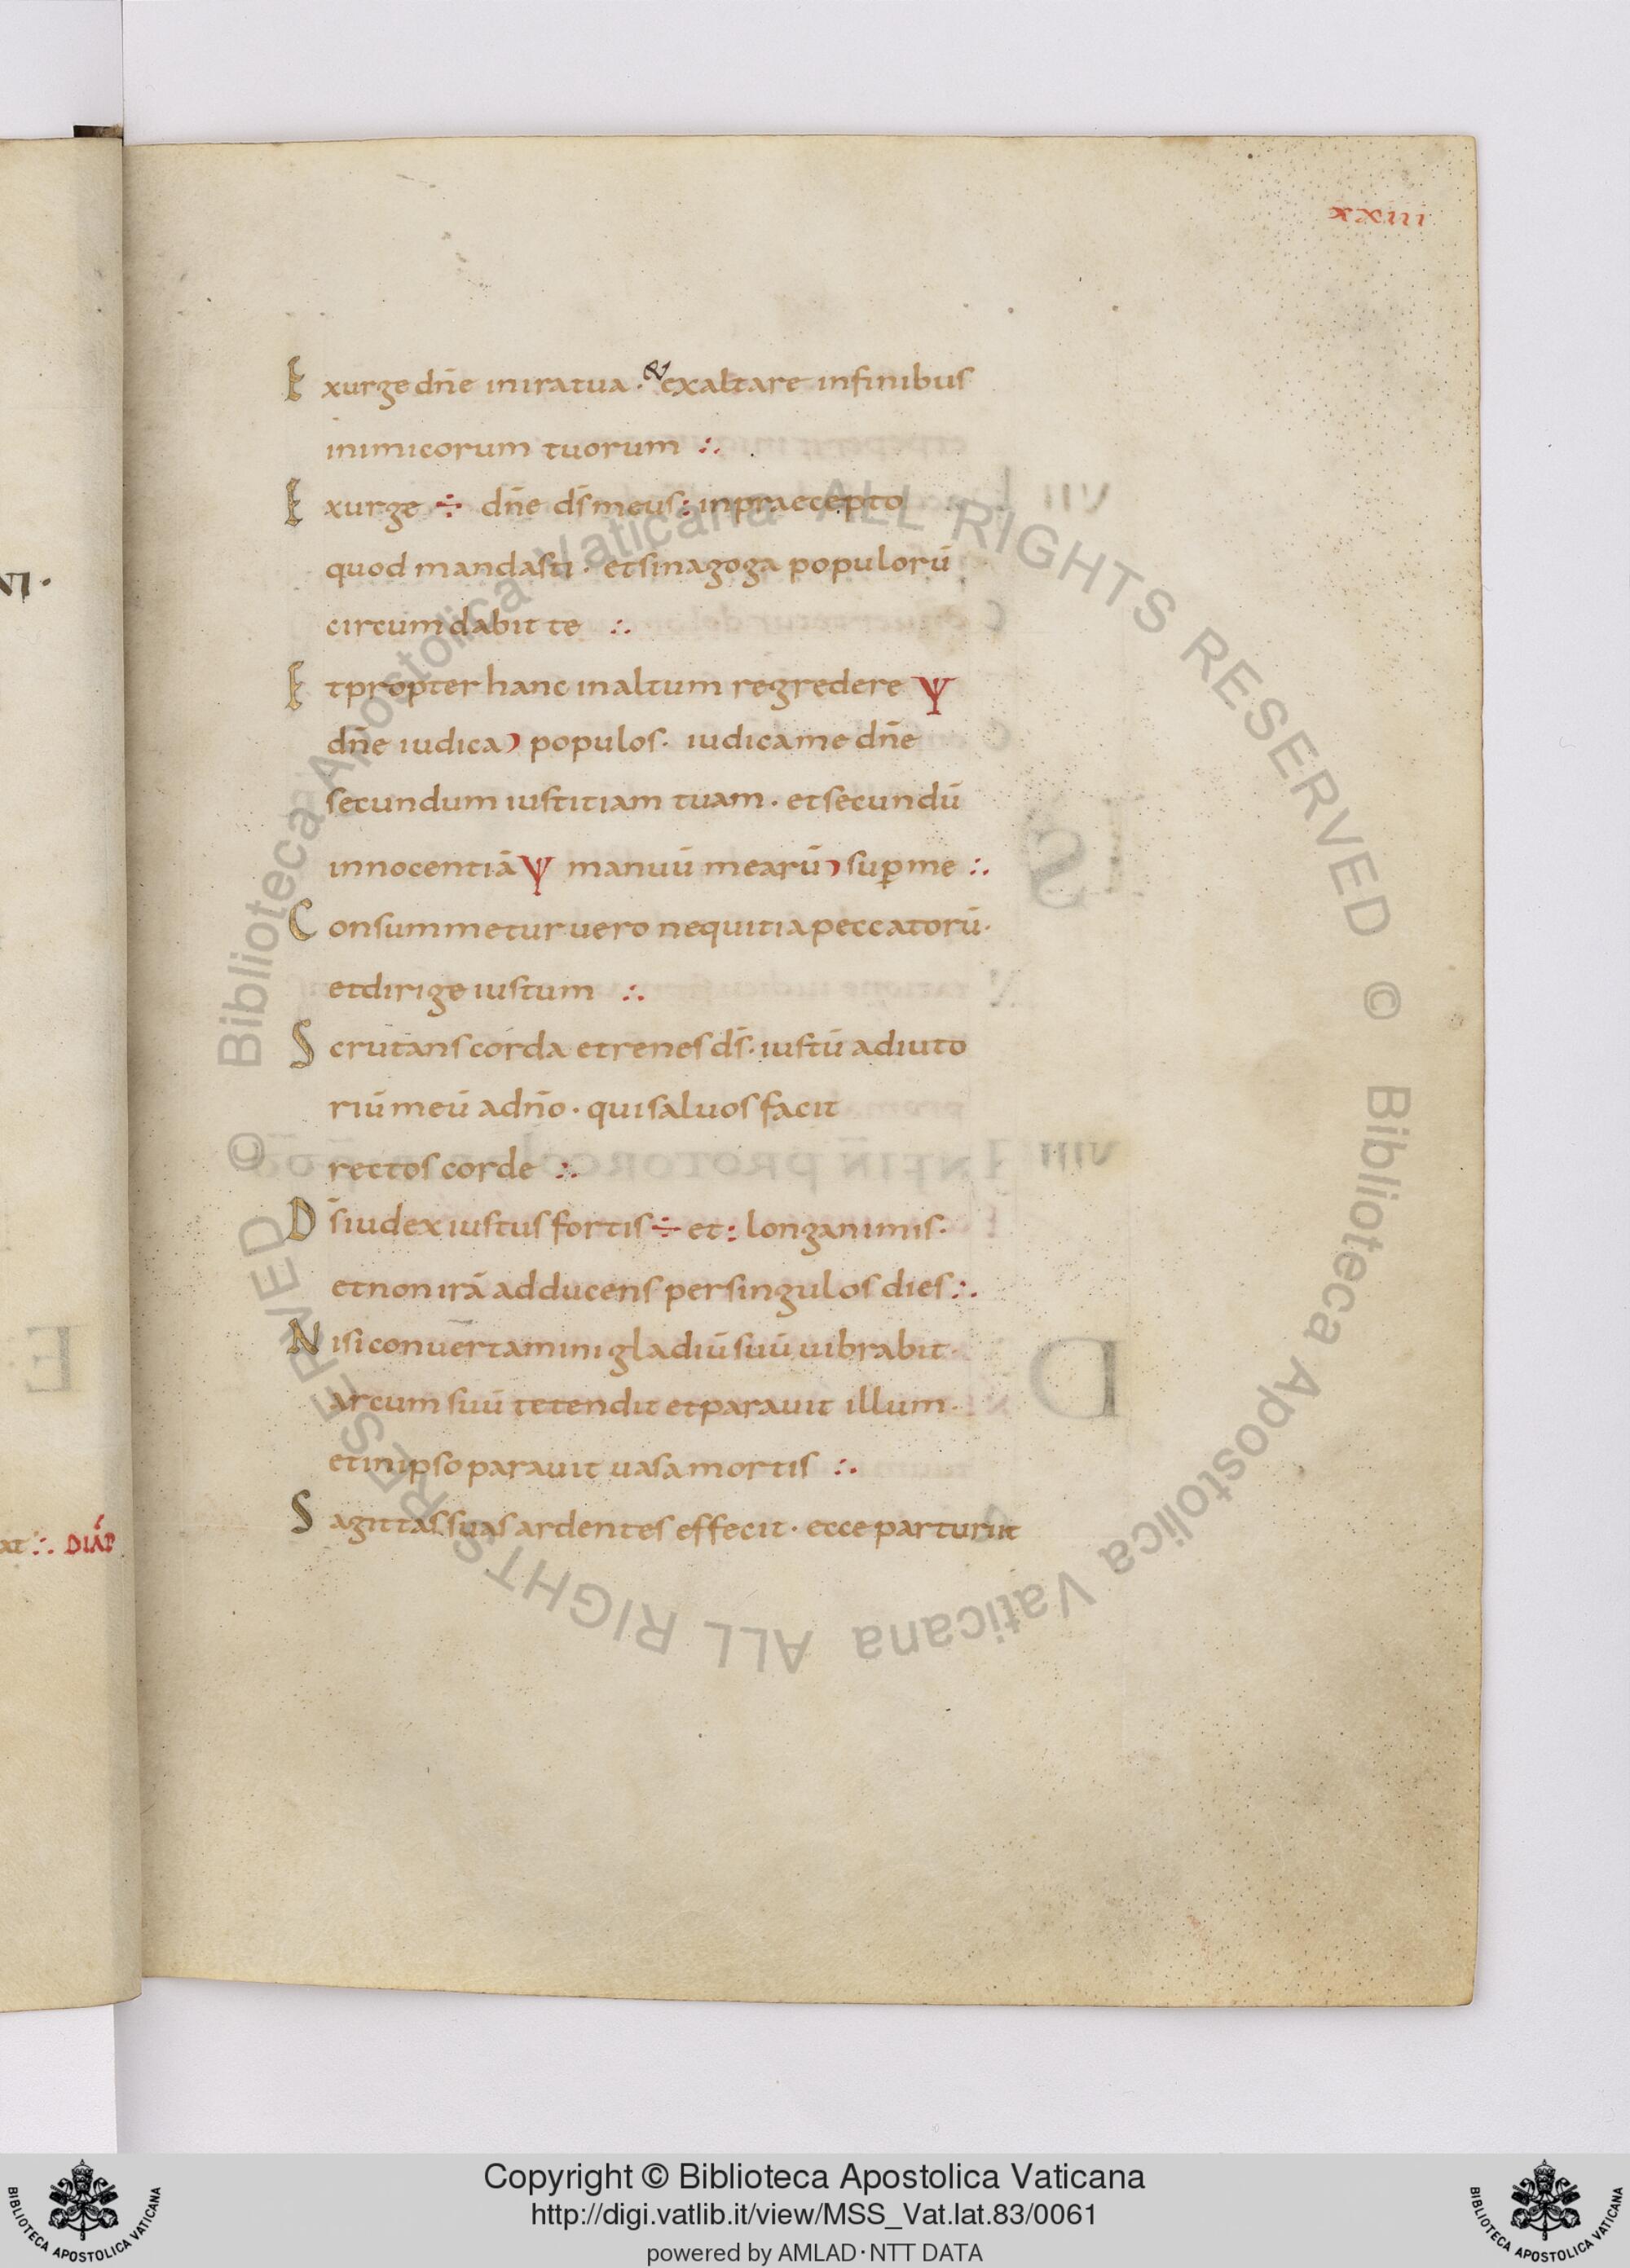 xxiii
Exurge dn̄e in ira tua · & exaltare in finibus
inimicorum tuorum ∴
Exurge ÷ dn̄e ds̄ meus : in praecepto
quod mandasti · et sinagoga populorū
circumdabit te ∴
Et propter hanc in altum regredere Ψ
dn̄e iudica) populos · iudica me dn̄e
secundum iustitiam tuam · et secundū
innocentiā Ψ manuū mearū) sup̄ me ∴
Consummetur uero nequitia peccatorū ·
et dirige iustum ∴
Scrutans corda et renes ds̄ · iustū adiuto
riū meū a dn̄o · qui saluos facit
rectos corde ∴
Ds̄ iudex iustus fortis ÷ et : longanimis ·
et non irā adducens per singulos dies ∴
Nisi conuertamini gladiū suū uibrabit ·
arcum suū tetendit et parauit illum ·
et in ipso parauit uasa mortis ∴
Sagittas suas ardentes effecit · ecce parturiit
Biblioteca Apostolica Vaticana ALL RIGHTS RESERVED ©
Biblioteca Apostolica Vaticana ALL RIGHTS RESERVED ©
Copyright © Biblioteca Apostolica Vaticana
http://digi.vatlib.it/view/MSS_Vat.lat.83/0061
powered by AMLAD·NTT DATA
BIBLIOTECA APOSTOLICA VATICANA
BIBLIOTECA APOSTOLICA VATICANA